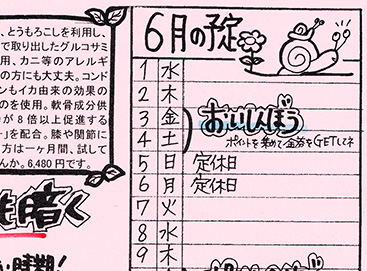 、とうもろこしを利用し、
で取り出したグルコサミ
用、カニ等のアレルギ
の方にも大丈夫。コンド
ンもイカ由来の効果の
のを使用。軟骨成分供
が8倍以上促進する
」を配合。膝や関節に
方は一ヶ月間、試して
んか。6,480円です。
も暗く
い時期!
6月の予定
1 水
2 木
3 金
4 土
おいしんぼう
ポイントを集めて金券をGETしてネ
5 日 定休日
6 月 定休日
7 火
8 水
9 木